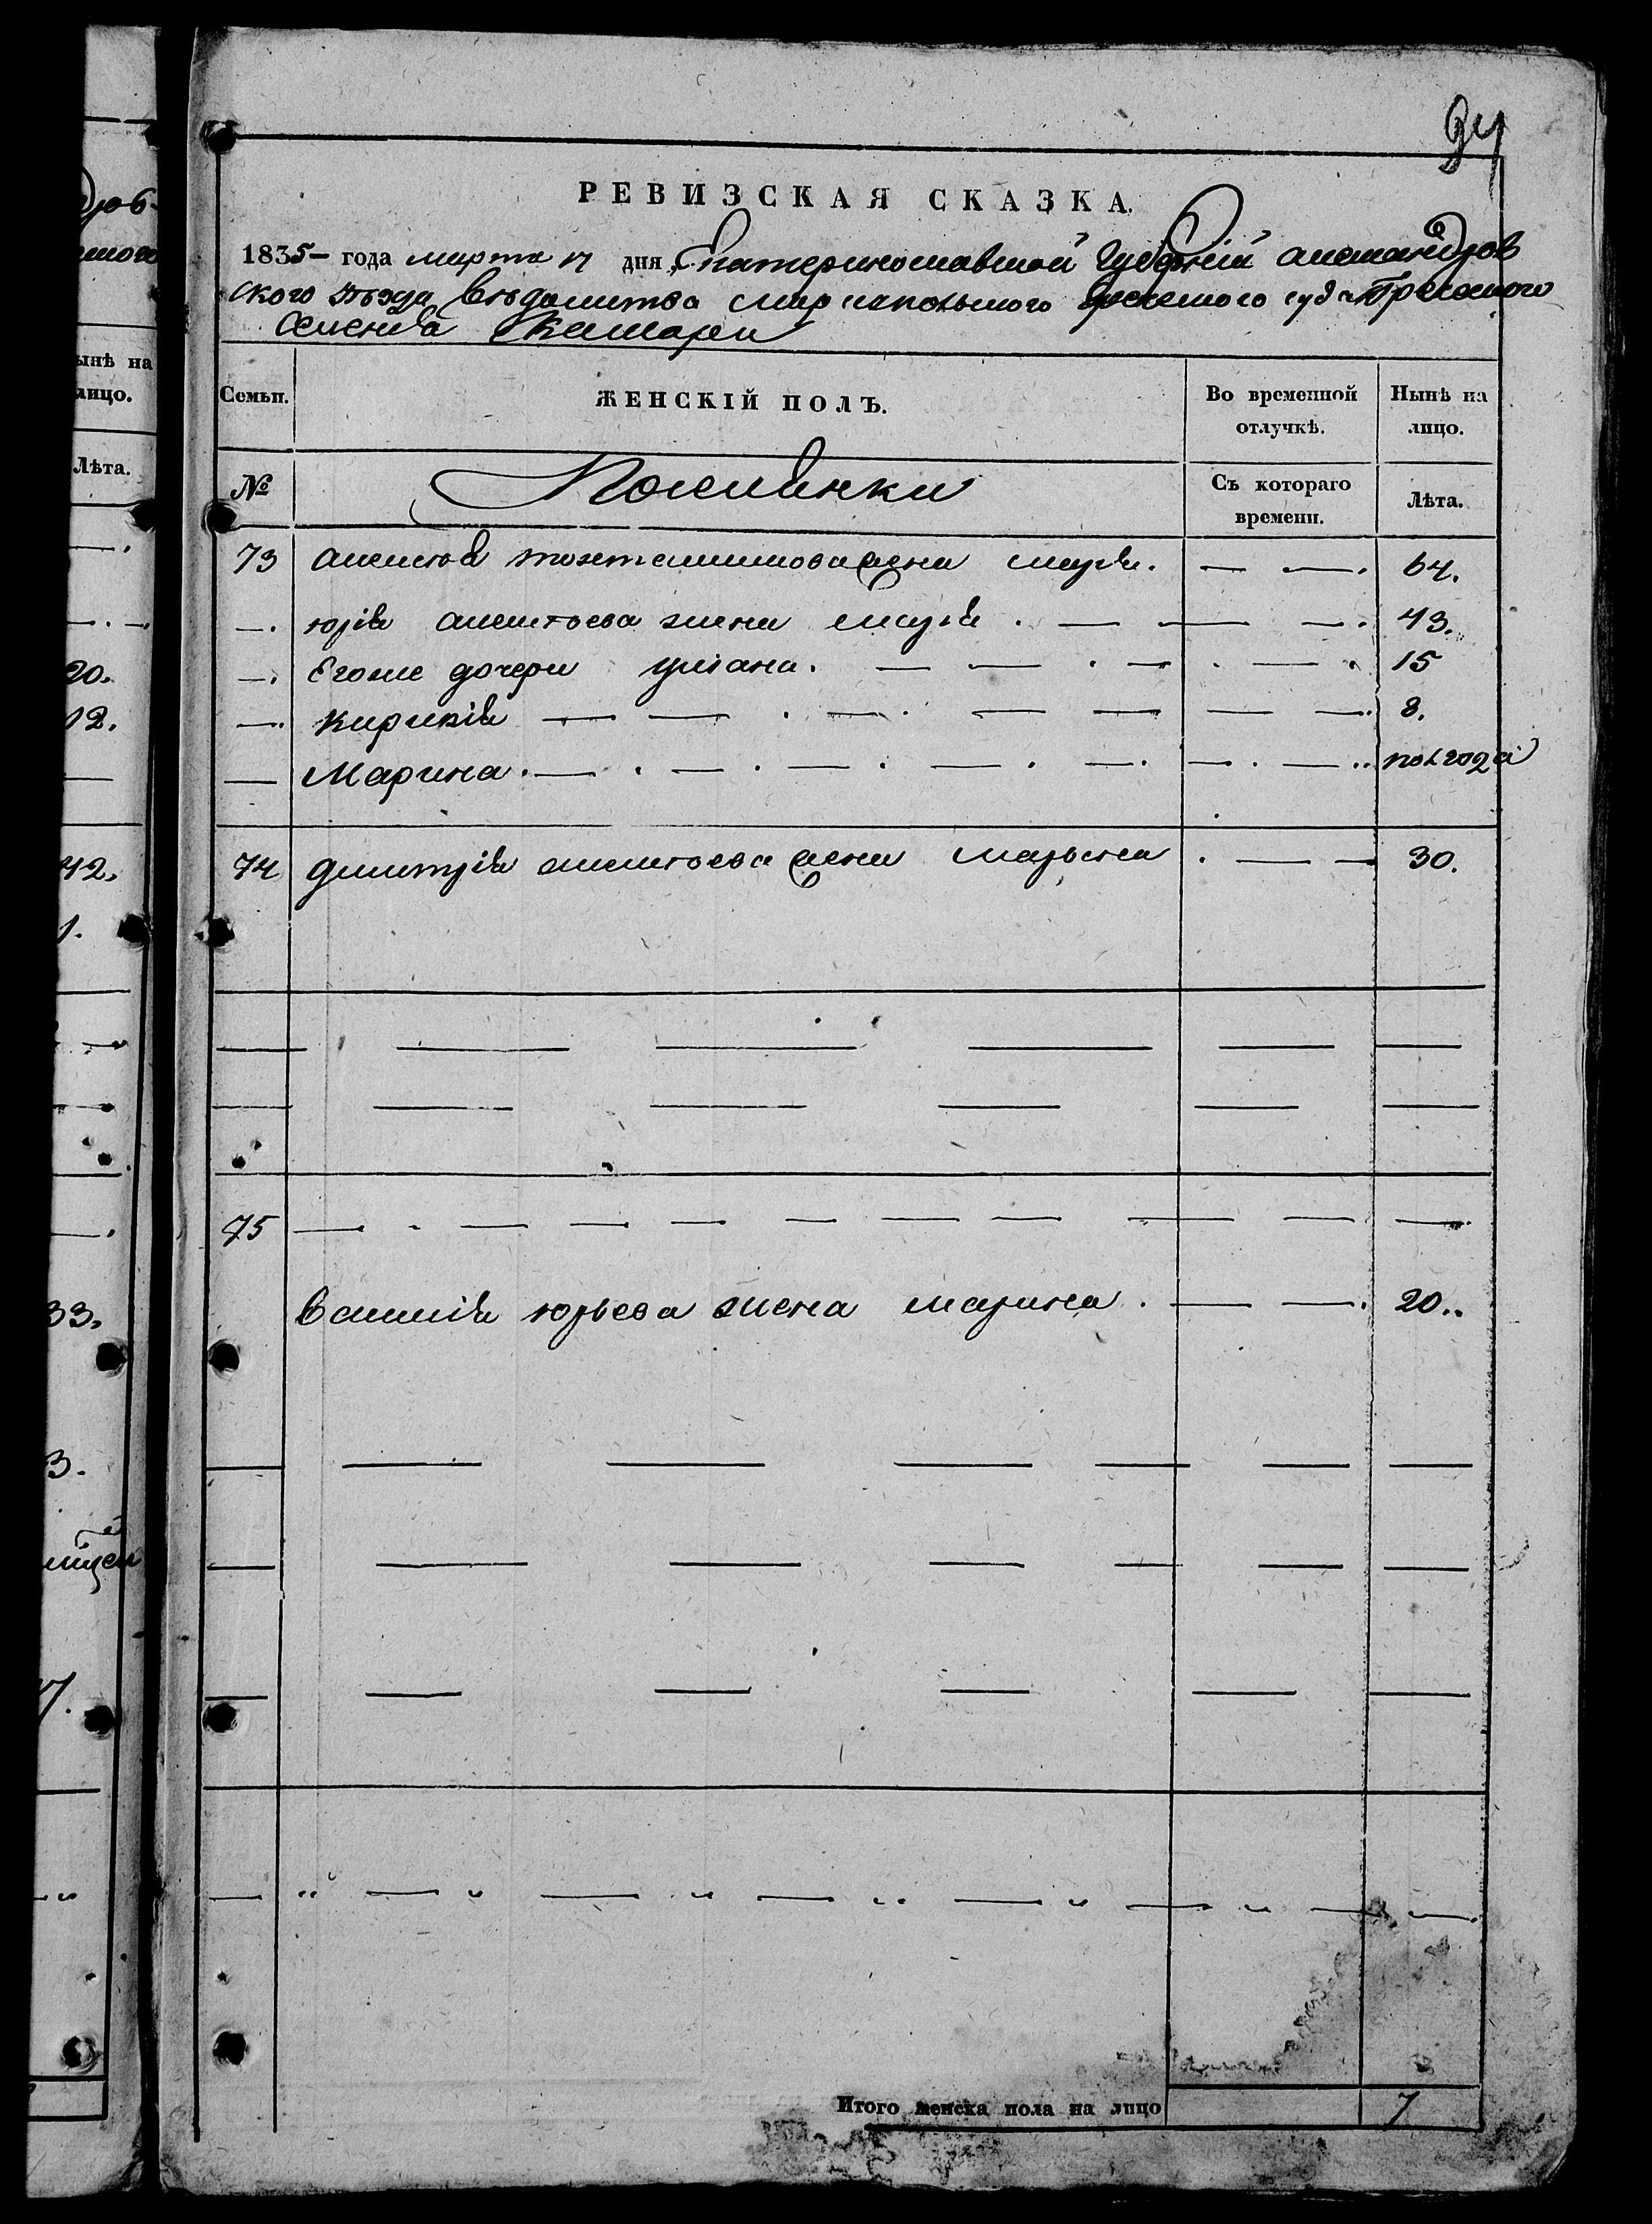 94
РЕВИЗСКАЯ СКАЗКА.
1835 года марта 17 дня Екатеринославской Губерніи александров
ского уѣзда Ведомитва мариупольского Греческого суда Греческого
Селенія
Семьи.
ЖЕНСКІЙ ПОЛЪ.
Во временной отлучкѣ.
Ныиѣ на лицо.
№
Поселянки
Съ котораго времени.
Лѣта.
73 алексѣя жена марія. 64.
юрія алексѣева жена марія. 43.
Егоже дочери 15
Кирикія 8.
Марина. полгода
74 дмитрія алексѣева жена марьена 30.
75
василія юрьева жена марина. 20.
Итого женска пола на лицо 7
ынѣ на
лицо.
Лѣта.
20.
12.
42.
1.
33.
3.